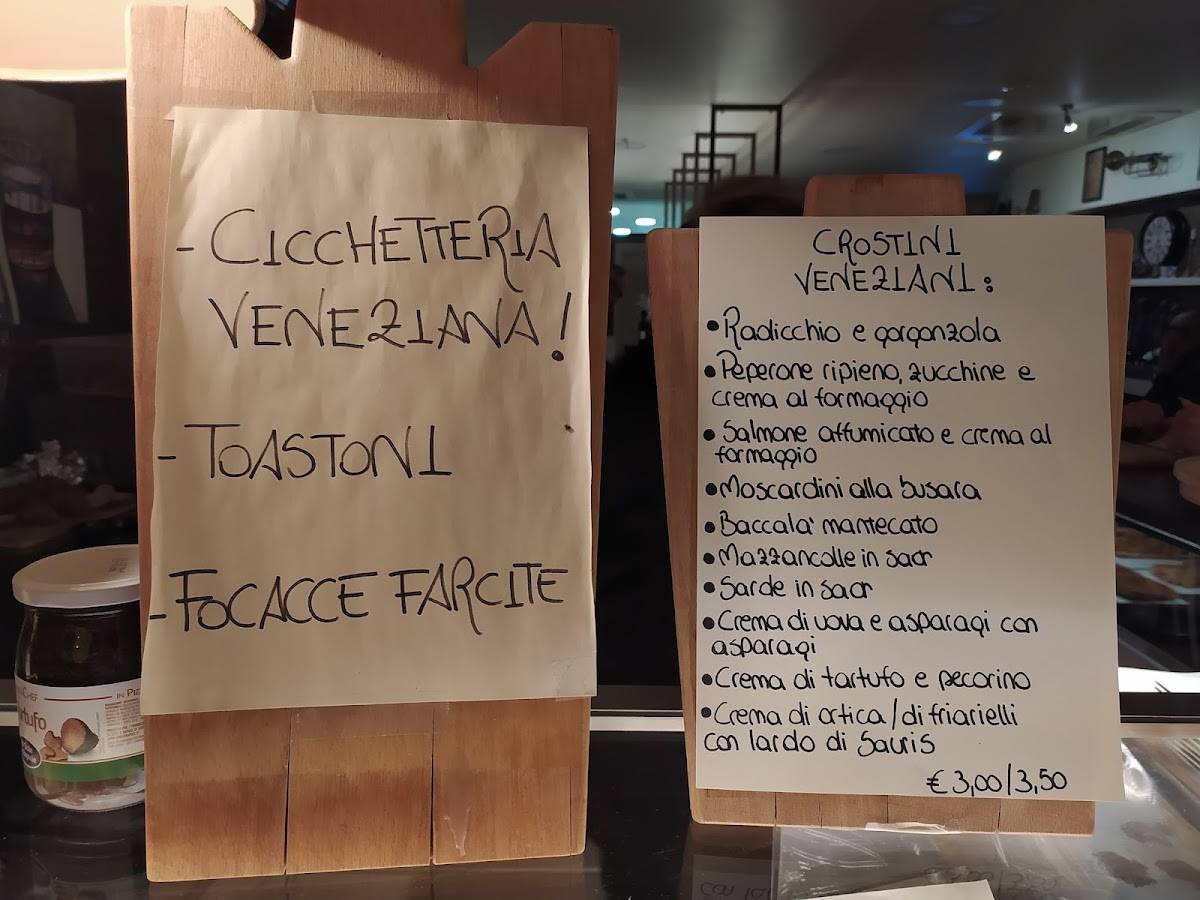 - CICCHETTERIA
VENEZIANA!
- TOASTONI
- FOCACCE FARCITE
CROSTINI
VENEZIANI:
• Radicchio e gorgonzola
• Peperone ripieno, zucchine e
crema al formaggio
• Salmone affumicato e crema al
formaggio
• Moscardini alla busara
• Baccala' mantecato
• Mazzancolle in saor
• Sarde in saor
• Crema di uova e asparagi con
asparagi
• Crema di tartufo e pecorino
• Crema di ortica/di friarielli
con lardo di Sauris
€ 3,00/3,50
CHEF
IN PIZ
rtufo